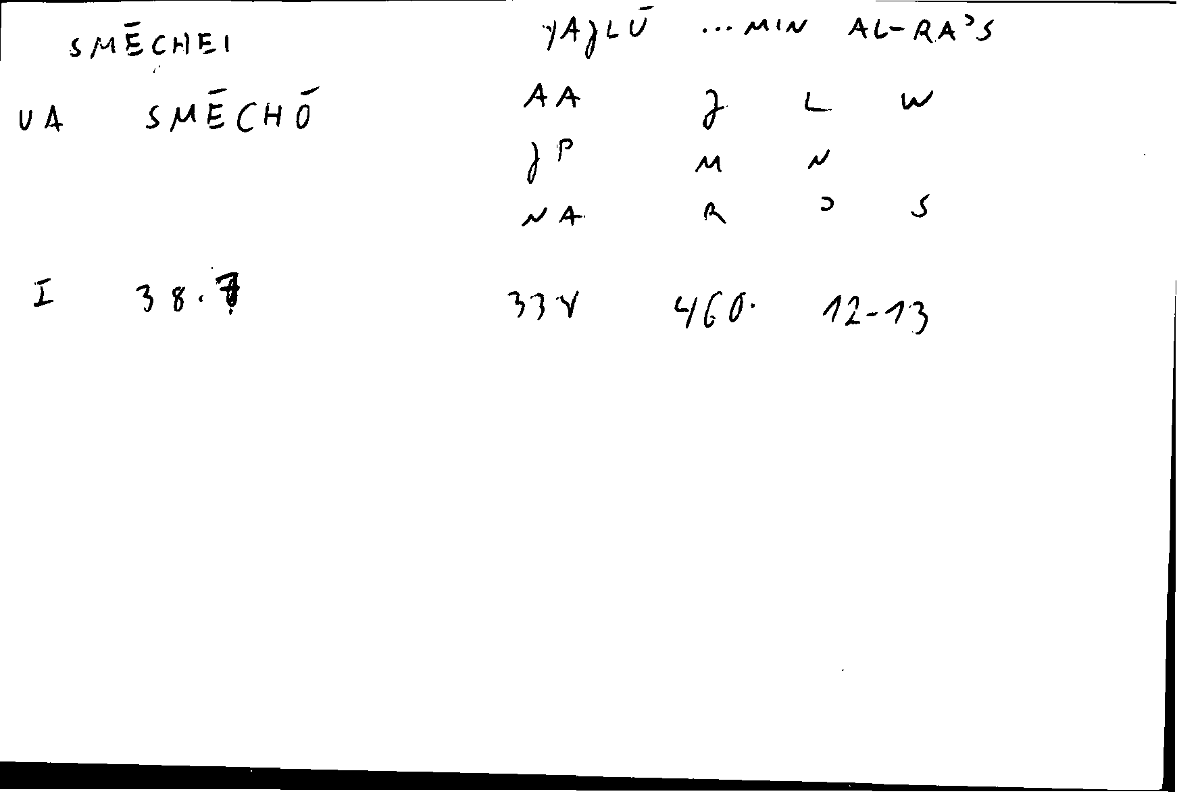 SMĒCHEI YAJLŪ ...MIN AL-RAʾS
VA SMĒCHŌ AA J L W
JP M N
NA R ʾ S
I 38.7 33V 460. 12-13